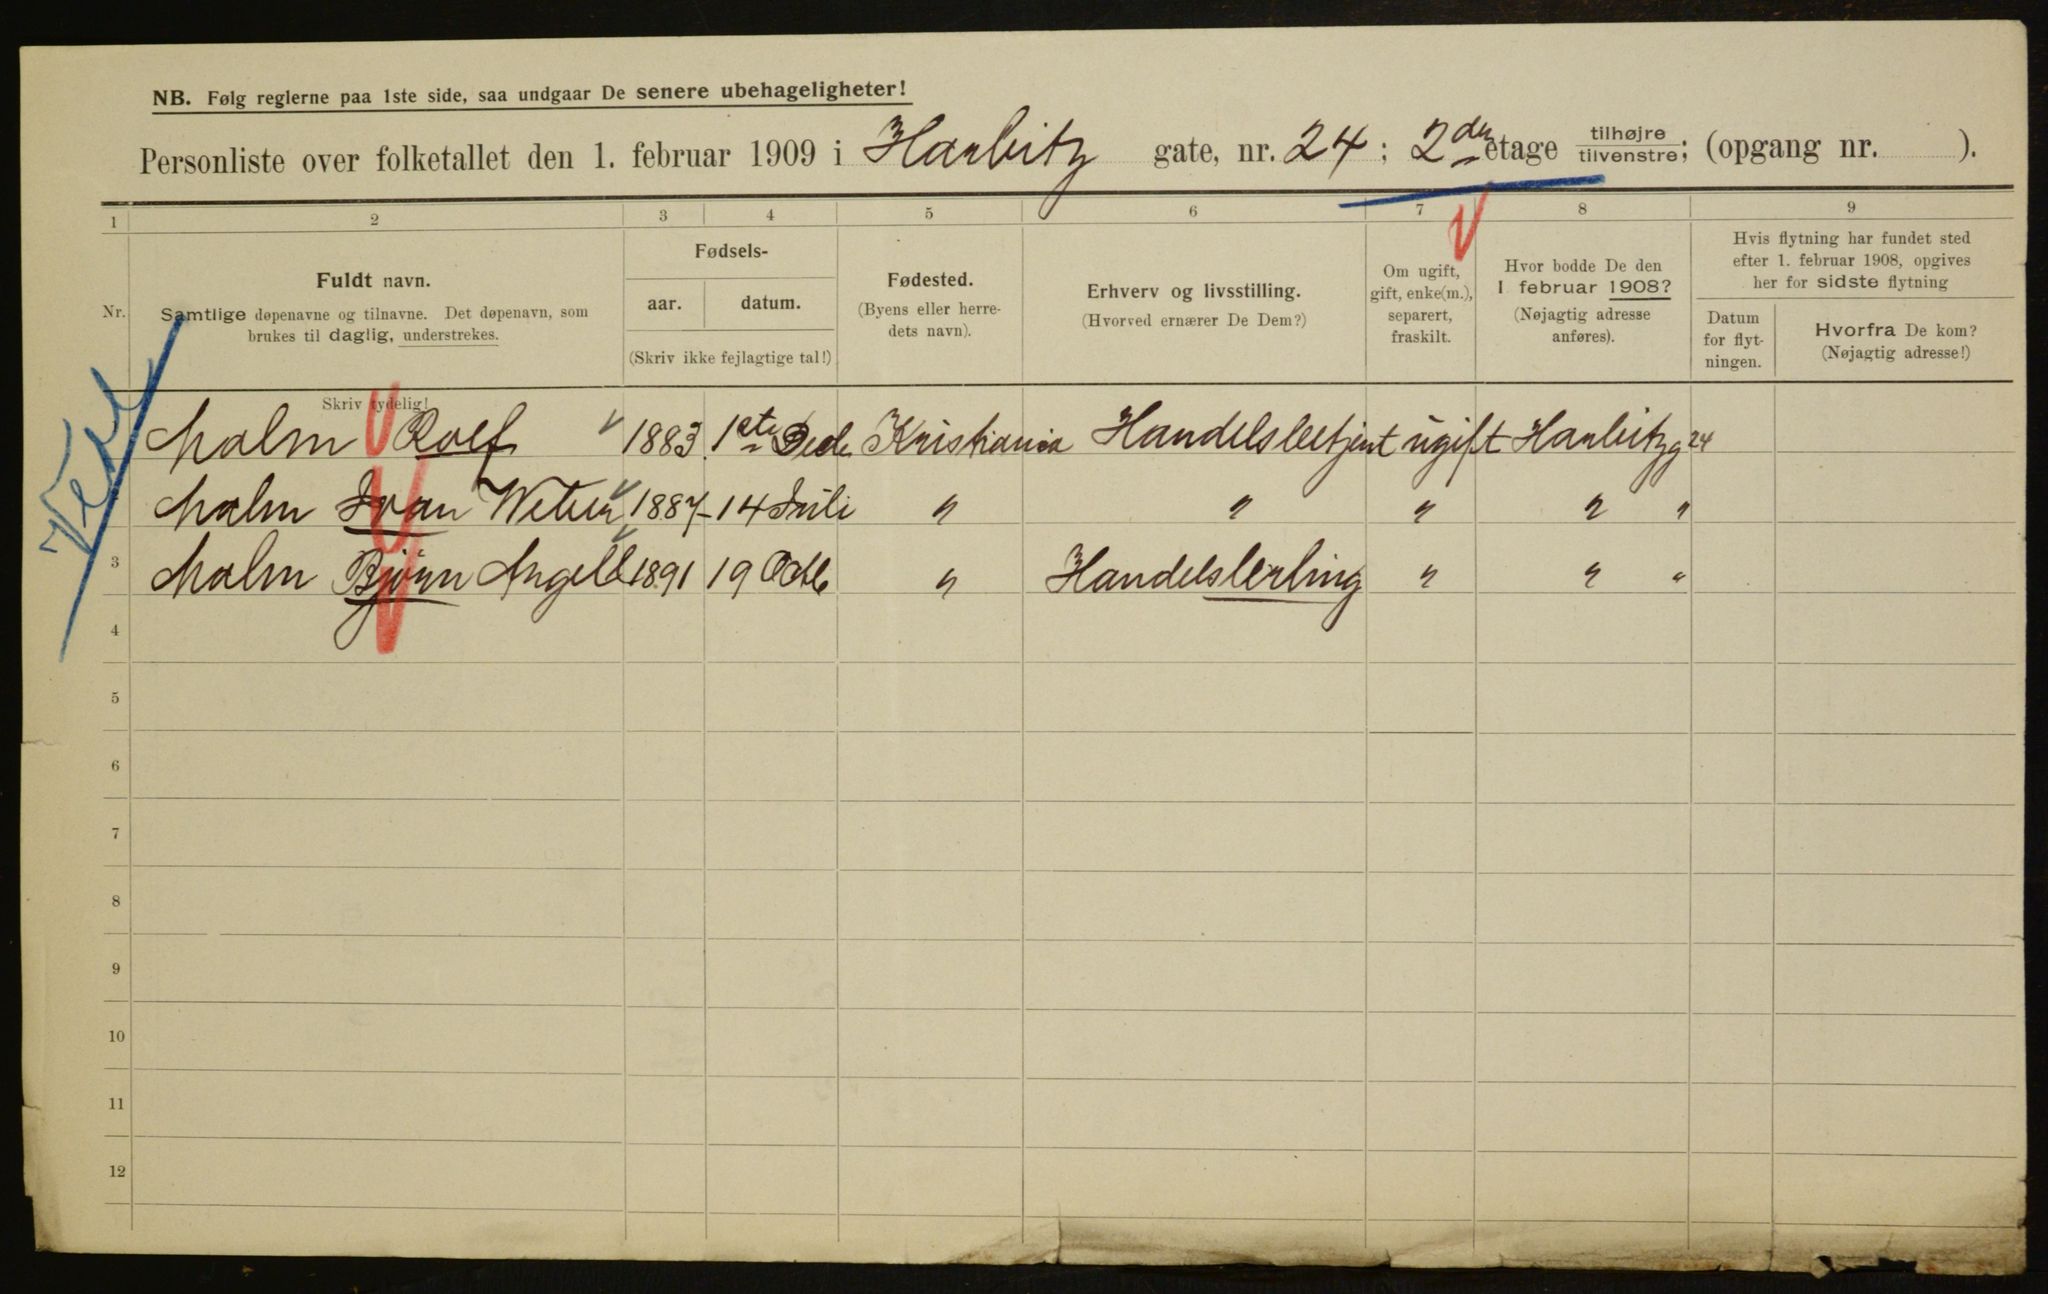 NB. Følg reglerne paa 1ste side, saa undgaar De senere ubehageligheter!
Personliste over folketallet den 1. februar 1909 i Harbitz gate, nr. 24; 2den etage tilhøjre tilvenstre; (opgang nr. ).
1 2 3 4 5 6 7 8 9
Nr.
Fuldt navn.
Samtlige døpenavne og tilnavne. Det døpenavn, som
brukes til daglig, understrekes.
Skriv tydelig!
Fødsels-
aar. datum.
(Skriv ikke fejlagtige tal!)
Fødested.
(Byens eller herre-
dets navn).
Erhverv og livsstilling.
(Hvorved ernærer De Dem?)
Om ugift,
gift, enke(m.),
separert,
fraskilt.
Hvor bodde De den
1 februar 1908?
(Nøjagtig adresse
anføres).
Hvis flytning har fundet sted
efter 1. februar 1908, opgives
her for sidste flytning
Datum
for flyt-
ningen.
Hvorfra De kom?
(Nøjagtig adresse!)
Malm Rolf 1883 1ste Dede Kristiania Handelsbetjent ugift Harbitzg 24
Malm Ivan 1887 14 Juli " " " " "
3 Malm Bjørn Angell 1891 19 Octb " Handelslerling " " "
4
5
6
7
8
9
10
11
12